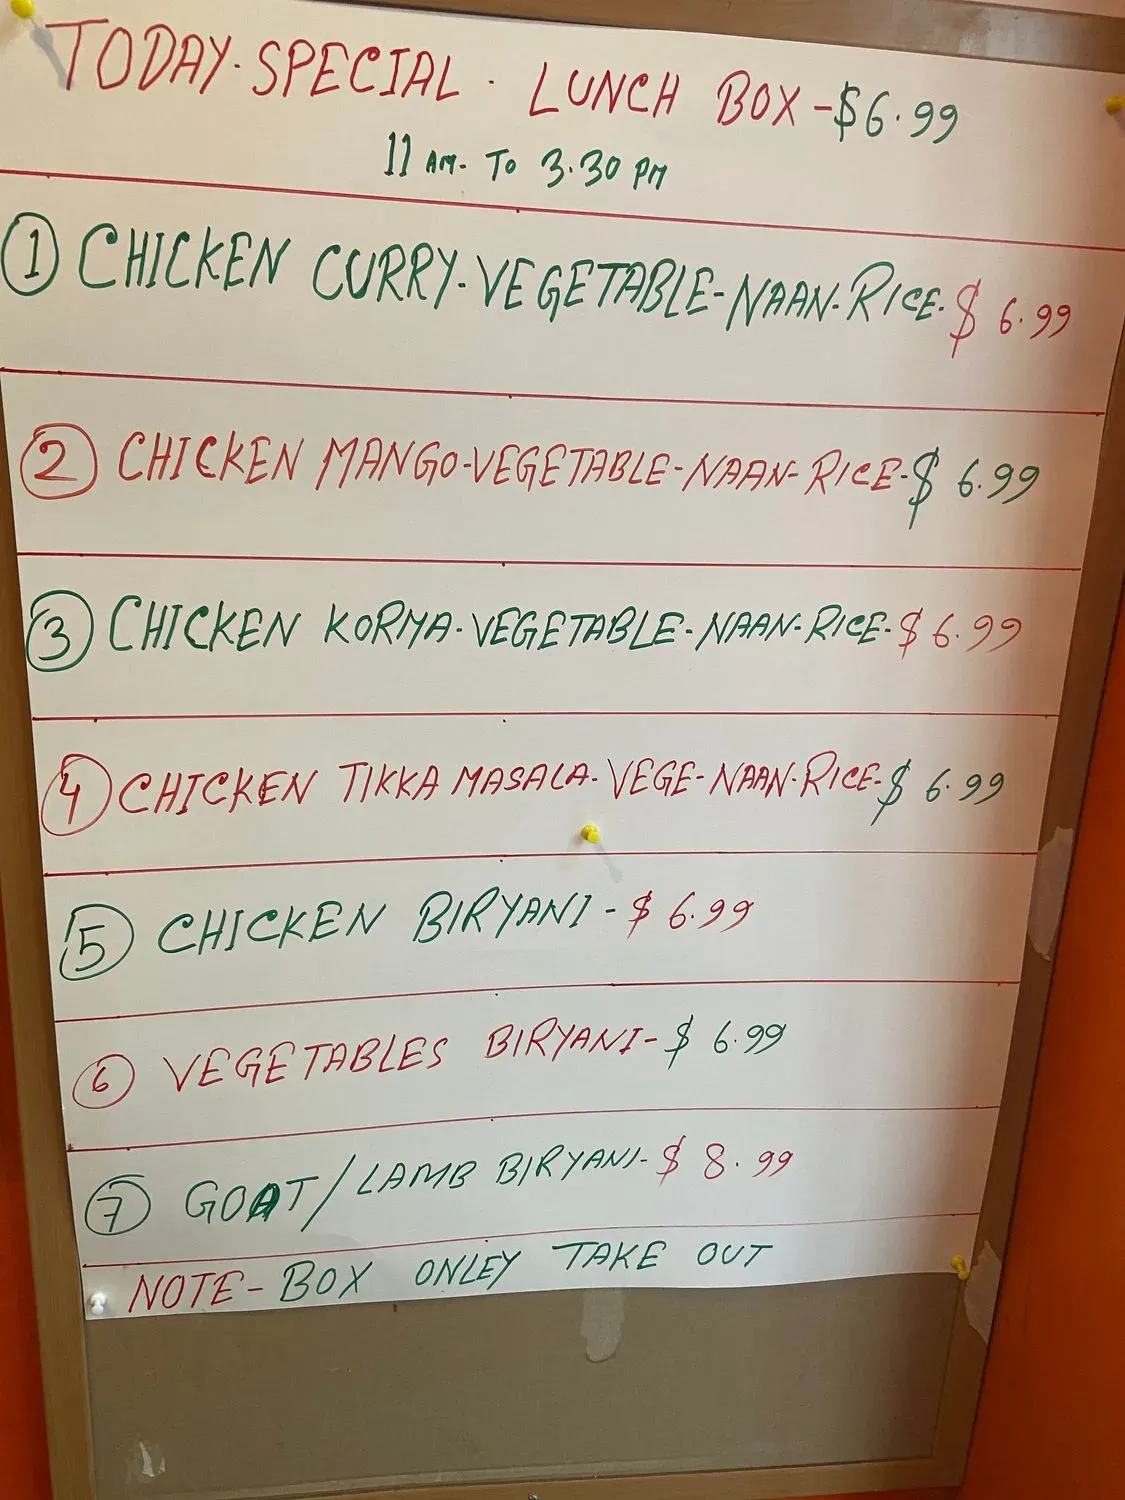 TODAY. SPECIAL. LUNCH BOX - $6.99
11 AM. TO 3.30 PM
1 CHICKEN CURRY-VEGETABLE-NAAN-RICE-$ 6.99
2 CHICKEN MANGO-VEGETABLE-NAAN-RICE-$ 6.99
3 CHICKEN KORMA-VEGETABLE-NAAN-RICE-$ 6.99
4 CHICKEN TIKKA MASALA-VEGE-NAAN-RICE-$ 6.99
5 CHICKEN BIRYANI-$ 6.99
6 VEGETABLES BIRYANI-$ 6.99
7 GOAT/LAMB BIRYANI-$ 8.99
NOTE-BOX ONLEY TAKE OUT